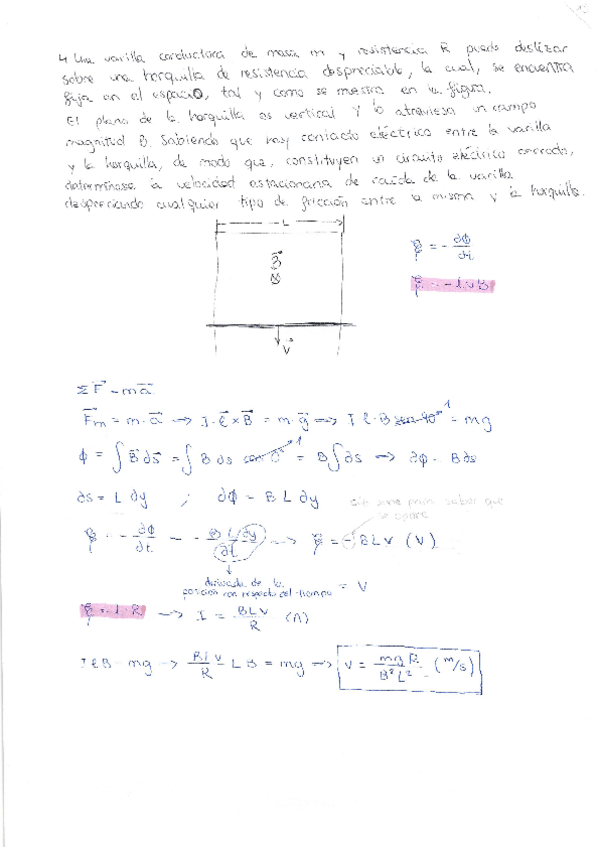 4. Una varilla conductora de masa m y resistencia R puede deslizar
sobre una horquilla de resistencia despreciable, la cual, se encuentra
fija en el espacio, tal y como se muestra en la figura.
El plano de la horquilla es vertical y lo atraviesa un campo
magnitud B. Sabiendo que hay contacto eléctrico entre la varilla
y la horquilla, de modo que, constituyen un circuito eléctrico cerrado,
determínese la velocidad estacionaria de caída de la varilla
despreciando cualquier tipo de fricción entre la misma y la horquilla.
L
B⃗
⊗
V⃗
ξ = - ∂Φ/∂t
ξ = - L v B
Σ F⃗ = m a⃗
F⃗m = m · a⃗ → I · ℓ⃗ × B⃗ = m · g⃗ → I ℓ · B sen 90° 1 = mg
ϕ = ∫ B⃗ ds⃗ = ∫ B ds cos 0° 1 = B ∫ ∂s → ∂ϕ = B ∂s
∂s = L ∂y ; ∂ϕ = B L ∂y
sólo sirve para saber que
se opone
ξ = - ∂ϕ/∂t = - B L ∂y/∂t → ξ = - B L V (V)
derivada de la
posición con respecto del tiempo = V
ξ = I · R → I = BLV/R (A)
I ℓ B = mg → BLV/R L B = mg → V = mgR/B²L² (m/s)